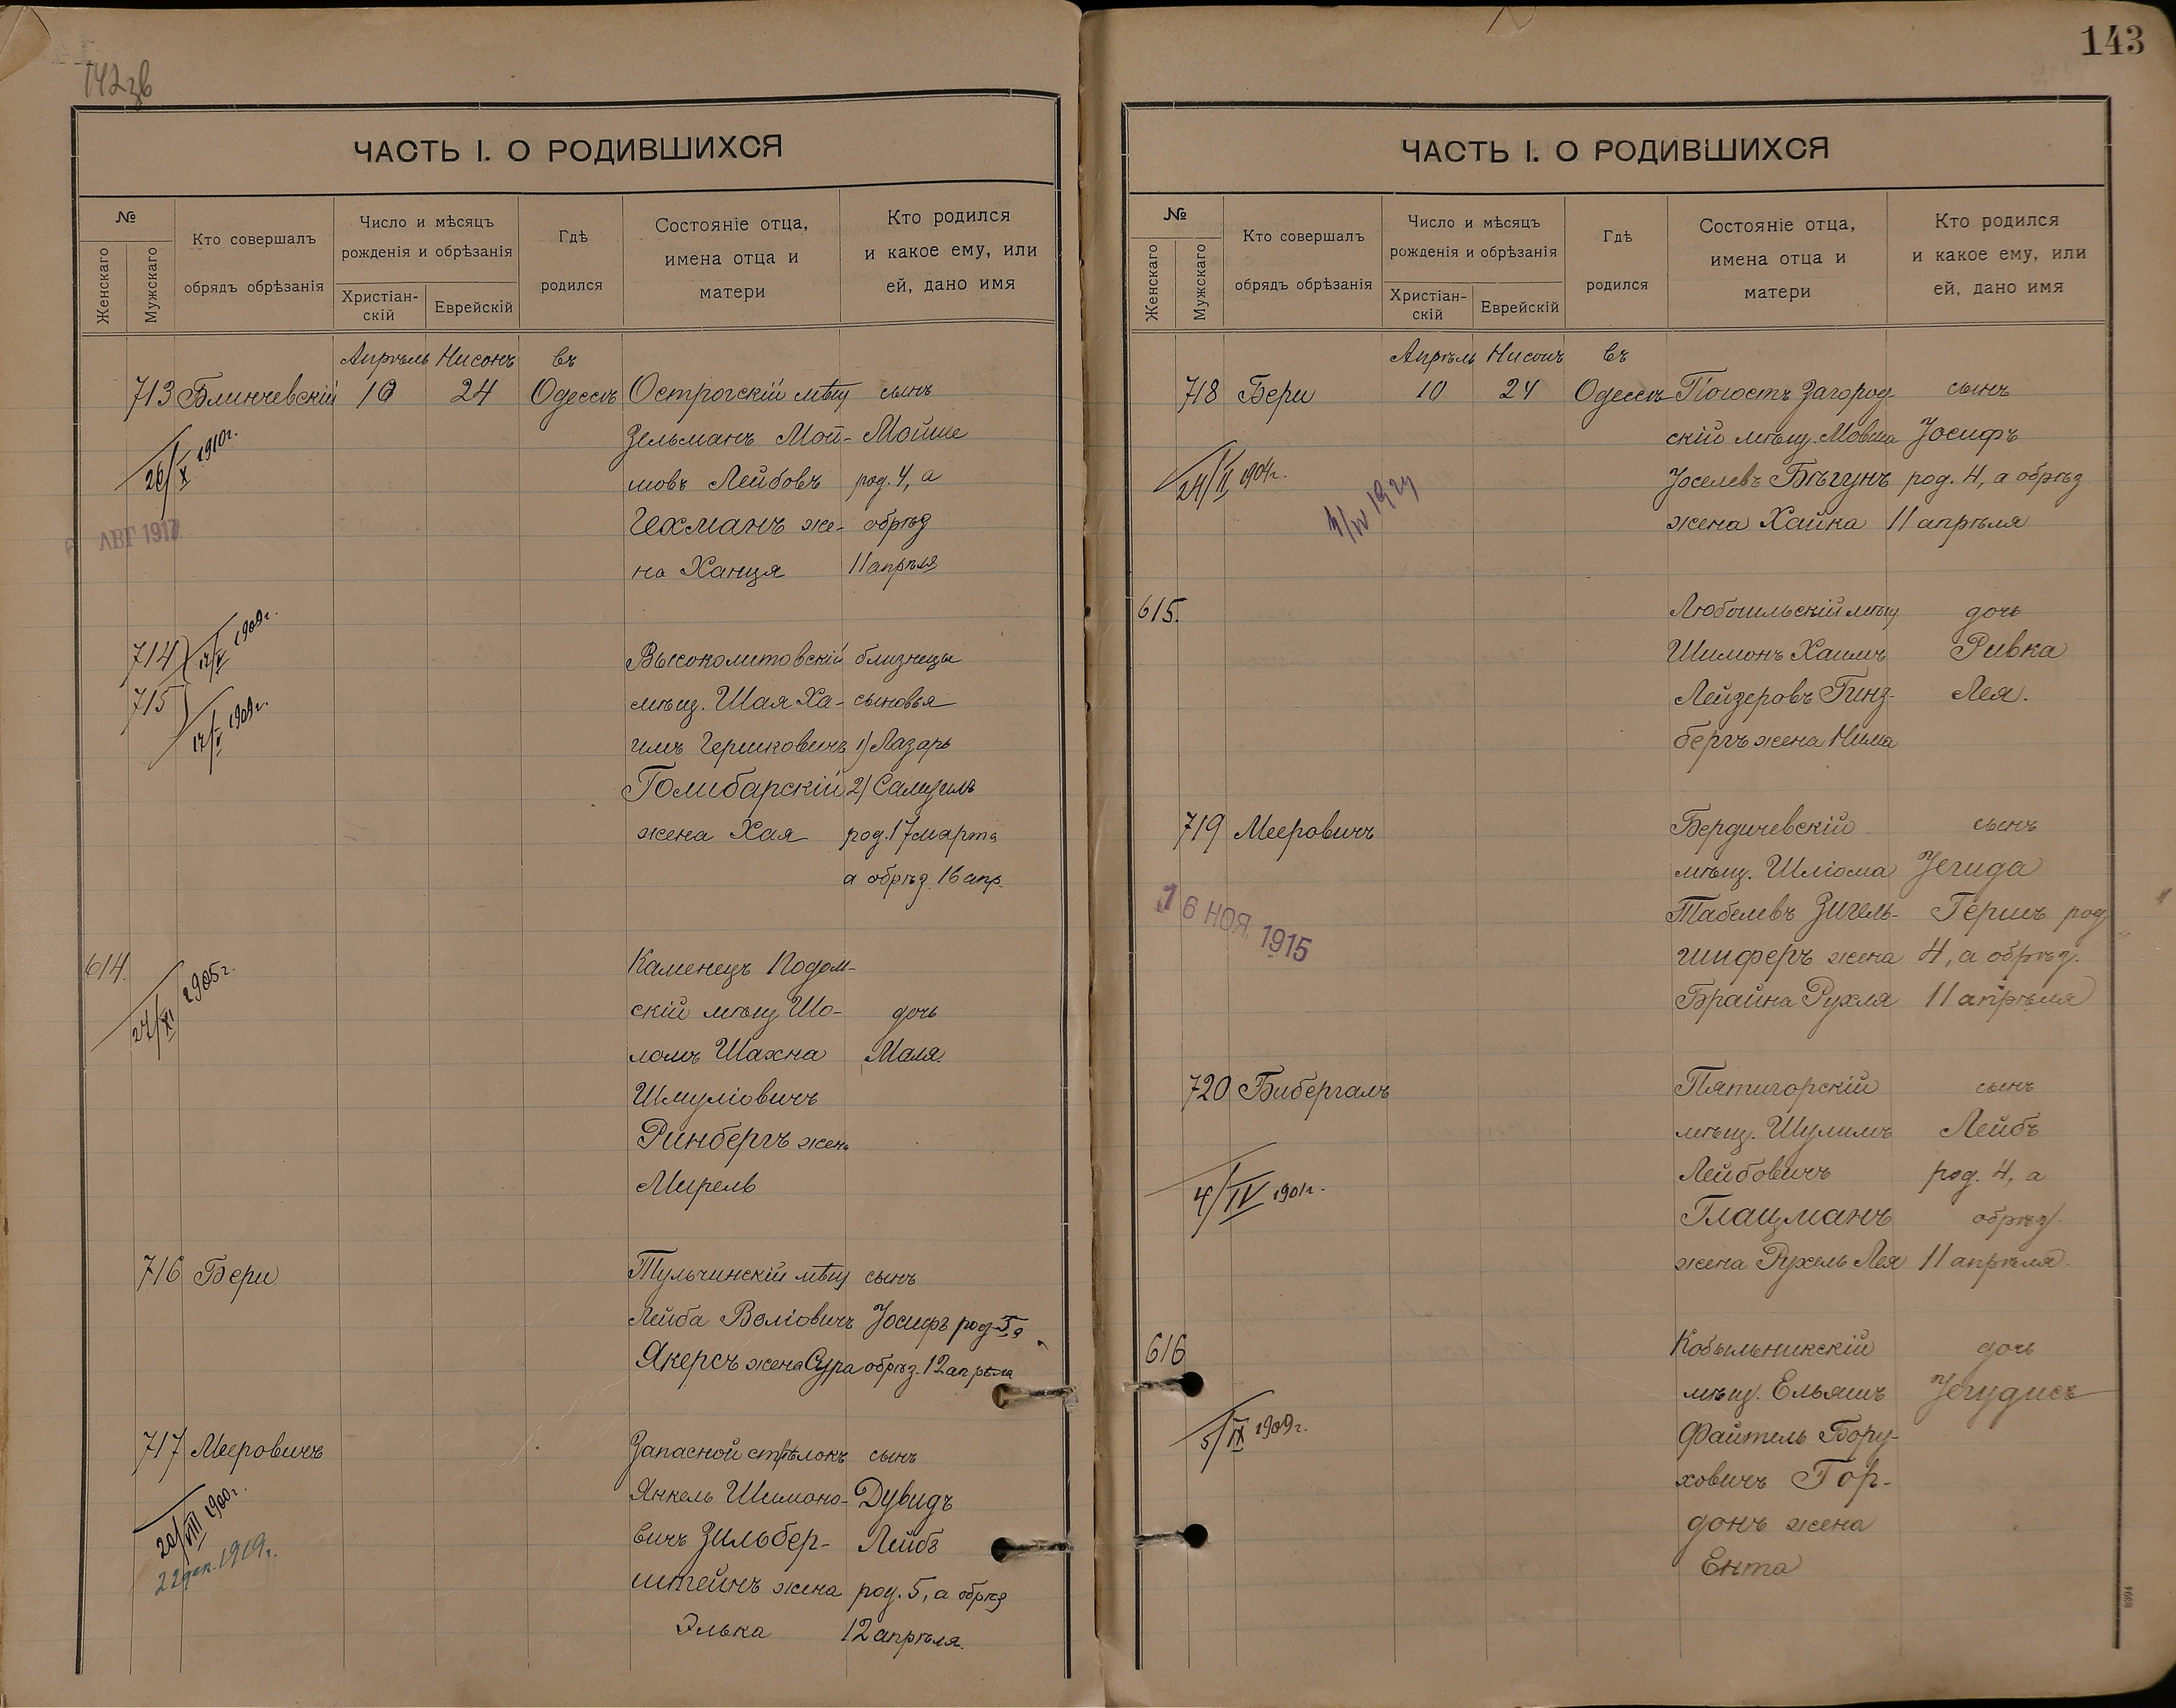 142зв
ЧАСТЬ I. О РОДИВШИХСЯ
№
Женскаго
Мужскаго
Кто совершалъ
обрядъ обрѣзанія
Число и мѣсяцъ
рожденія и обрѣзанія
Христіан-
скій
Еврейскій
Гдѣ
родился
Состояніе отца,
имена отца и
матери
Кто родился
и какое ему, или
ей, дано имя
Апрѣль Нисонъ въ
713 Блинчевскій 10 24 Одессѣ Острогскій мѣщ сынъ
Зельманъ Мой- Мойше
шовъ Лейбовъ род. 4, а
Гехманъ же- обрѣз
на Ханця 11 апрѣля
26/X 1910г.
АВГ 1917
714 17/V 1909г.
Высоколитовскій близнецы
715 17/V 1909г.
мѣщ. Шая Ха- сыновья
имъ Гершковичъ 1) Лазарь
Голибарскій 2) Самуилъ
жена Хая род. 17 марта
а обрѣз. 16 апр.
614. Каменецъ Подол-
скій мѣщ Шо- дочь
ломъ Шахна Маля.
Шмуліовичъ
Ринбергъ жена
Мирель
27/XI 1905г.
716 Бери Тульчинскій мѣщ сынъ
Лейба Воліовичъ Іосифъ род. 5, а
Якерсъ жена Сура обрѣз. 12 апрѣля
717 Мееровичъ Запасной стрѣлокъ сынъ
Янкель Шимоно- Дувидъ
вичъ Зильбер- Лейбъ
штейнъ жена род. 5, а обрѣз
Элька 12 апрѣля.
20/VIII 1900г.
22 дек. 1919г.
143
ЧАСТЬ I. О РОДИВШИХСЯ
№
Женскаго
Мужскаго
Кто совершалъ
обрядъ обрѣзанія
Число и мѣсяцъ
рожденія и обрѣзанія
Христіан-
скій
Еврейскій
Гдѣ
родился
Состояніе отца,
имена отца и
матери
Кто родился
и какое ему, или
ей, дано имя
Апрѣль Нисонъ въ
718 Бери 10 24 Одессѣ Погостъ Загород- сынъ
скій мѣщ. Мовша Іосифъ
Іоселевъ Бѣгунъ род. 4, а обрѣз
жена Хайка 11 апрѣля
24/II 1904г.
615. Любошльскій мѣщ. дочь
Шимонъ Хаимъ Ривка
Лейзеровъ Гинз- Лея.
бергъ жена Нима
719 Мееровичъ Бердичевскій сынъ
мѣщ. Шліома Іегида
Табелевъ Зигель- Гершъ род
шиферъ жена 4, а обрѣз.
Брайна Рухля 11 апрѣля
16 НОЯ. 1915
720 Бибергалъ Пятигорскій сынъ
мѣщ. Шулимъ Лейбъ
Лейбовичъ род. 4, а
Глацманъ обрѣз.
жена Рухель Лея 11 апрѣля.
4/IV 1901г.
616 Кобыльникскій дочь
мѣщ. Ельяшъ Іегудисъ
Файтель Бору-
ховичъ Гор-
донъ жена
Ента
5/IX 1909г.